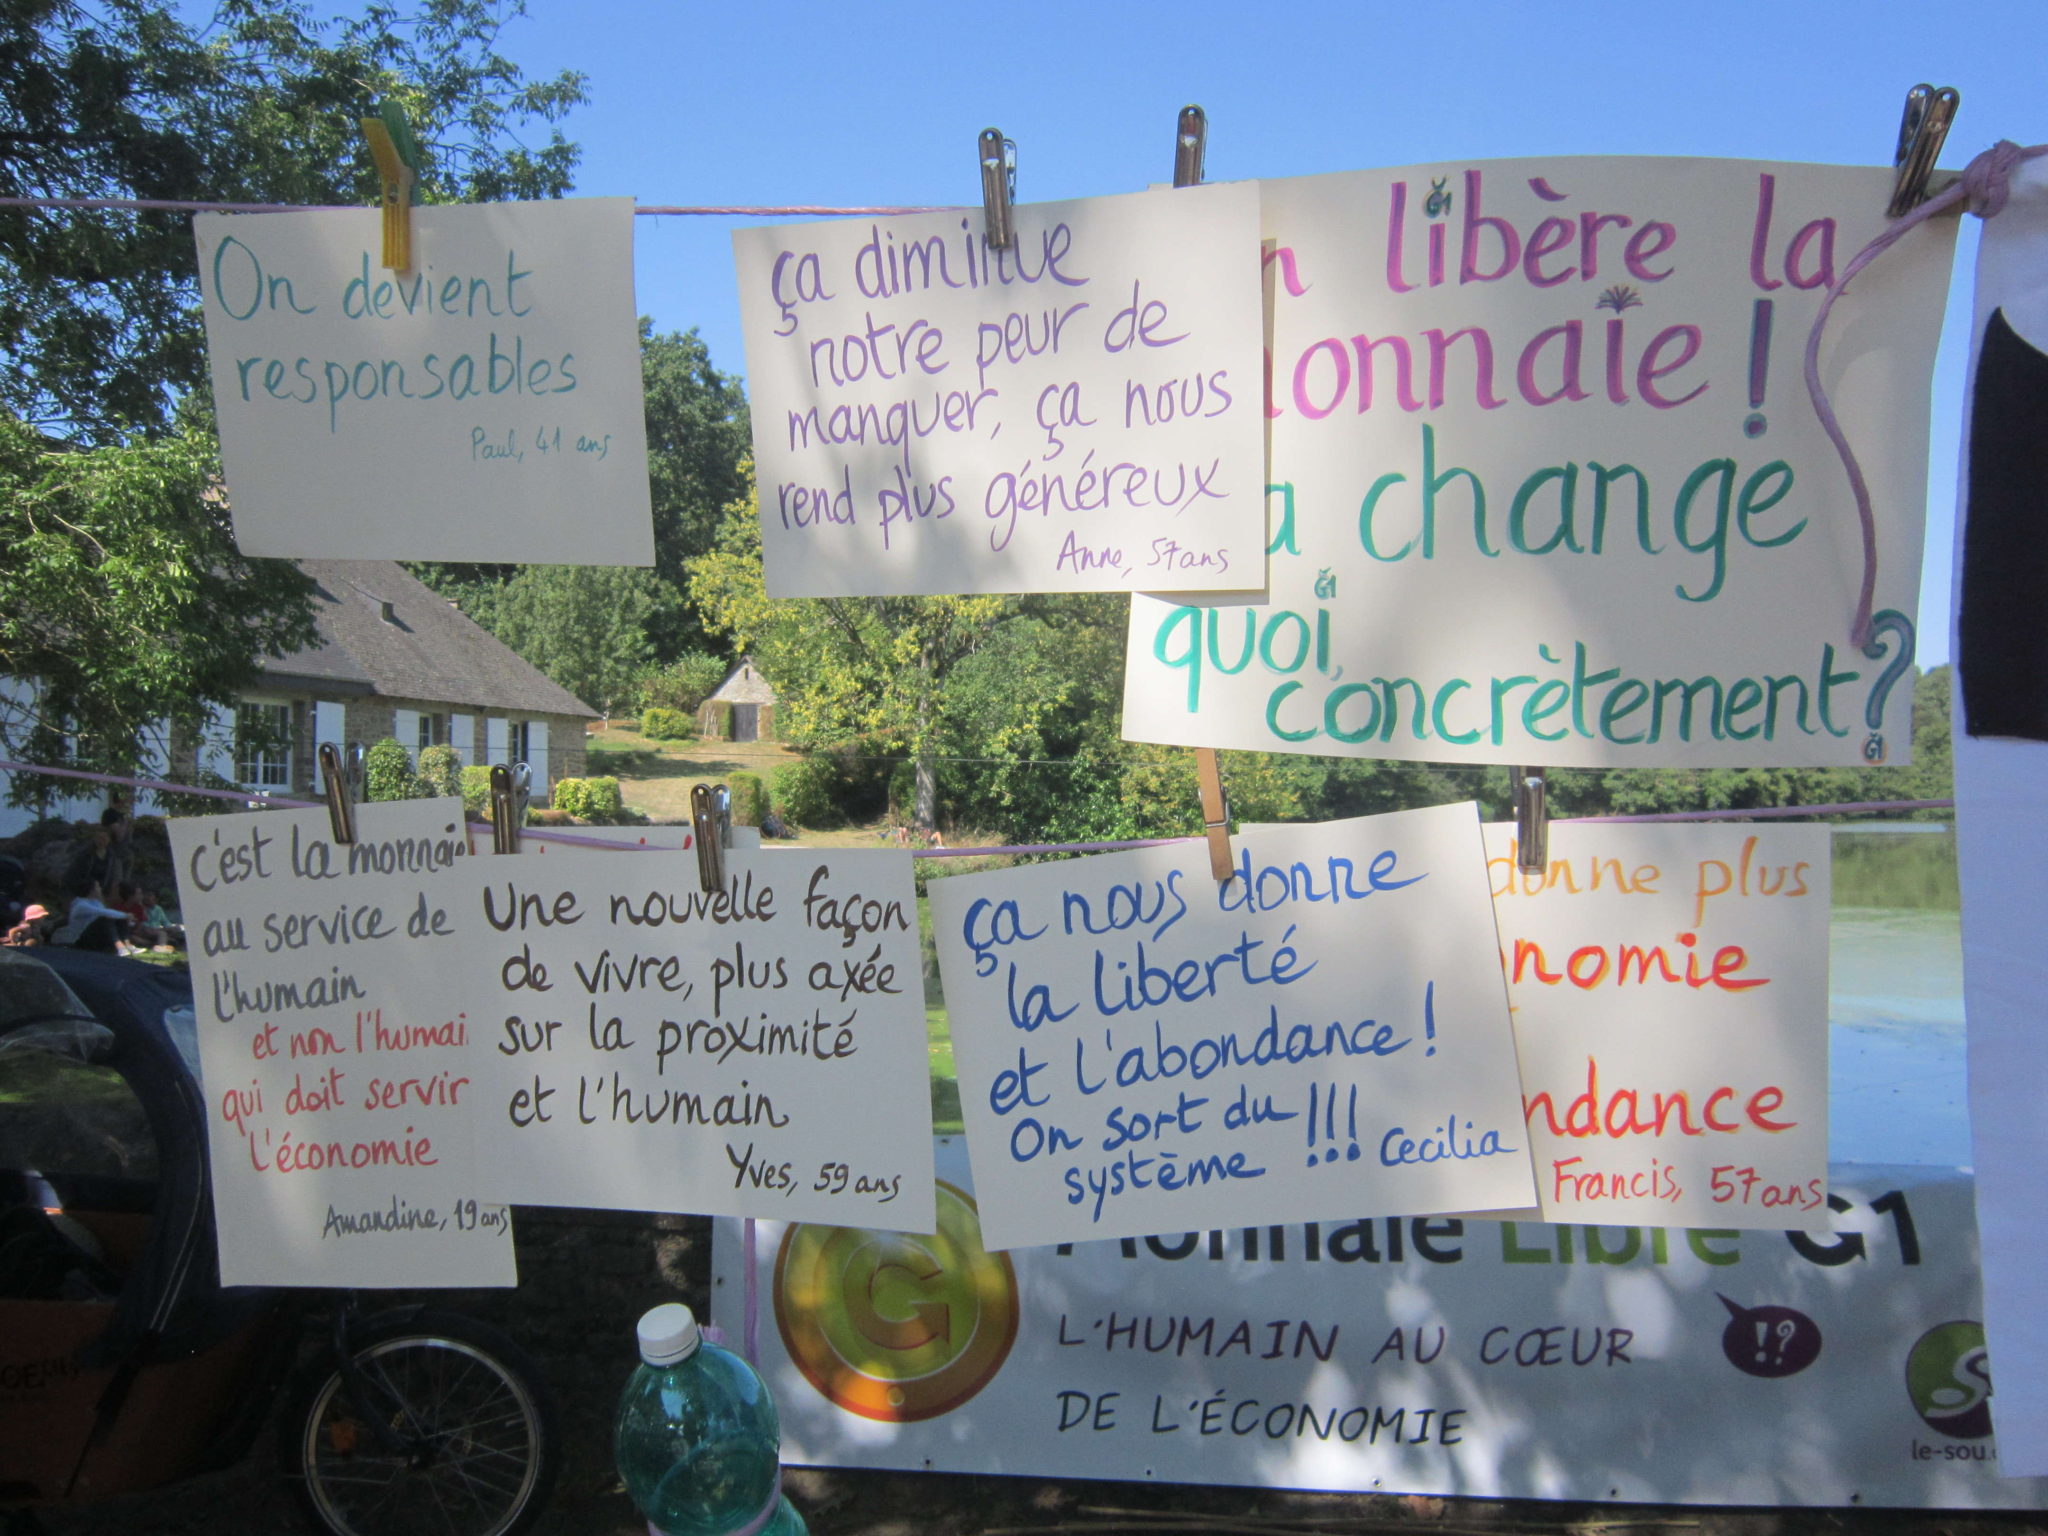 On devient
responsables
Paul, 41 ans
ça diminue
notre peur de
manquer, ça nous
rend plus généreux
Anne, 57 ans
n libère la
onnaie !
a change
quoi,
concrètement ?
c'est la monnaie
au service de
l'humain
et non l'humai
qui doit servir
l'économie
Amandine, 19 ans
Une nouvelle façon
de vivre, plus axée
sur la proximité
et l'humain
Yves, 59 ans
ça nous donne
la liberté
et l'abondance !
On sort du
système !!! Cecilia
donne plus
nomie
ndance
Francis, 57 ans
Monnaie Libre G1
L'HUMAIN AU CŒUR
DE L'ÉCONOMIE
!?
le-sou.